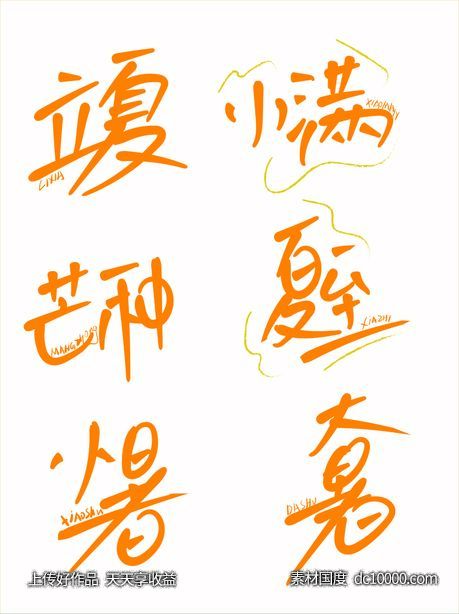 立夏
LIXIA
小满
XIAOMAN
芒种
MANGZHONG
夏至
XIAZHI
小暑
XIAOSHU
大暑
DASHU
上传好作品 天天享收益
素材国度 dc10000.com